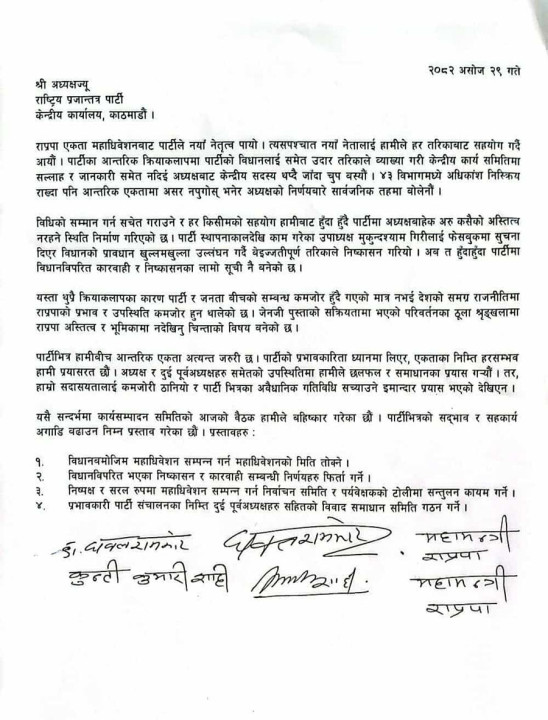 २०८२ असोज २९ गते
श्री अध्यक्षज्यू
राष्ट्रिय प्रजातन्त्र पार्टी
केन्द्रीय कार्यालय, काठमाडौं ।
राप्रपा एकता महाधिवेशनबाट पार्टीले नयाँ नेतृत्व पायो । त्यसपश्चात नयाँ नेतालाई हामीले हर तरिकाबाट सहयोग गर्दै
आयौं । पार्टीका आन्तरिक क्रियाकलापमा पार्टीको विधानलाई समेत उदार तरिकाले व्याख्या गरी केन्द्रीय कार्य समितिमा
सल्लाह र जानकारी समेत नदिई अध्यक्षबाट केन्द्रिय सदस्य थप्दै जाँदा चुप बस्यौं । ४३ विभागमध्ये अधिकांश निस्क्रिय
राख्दा पनि आन्तरिक एकतामा असर नपुगोस् भनेर अध्यक्षको निर्णयबारे सार्वजनिक तहमा बोलेनौं ।
विधिको सम्मान गर्न सचेत गराउने र हर किसीमको सहयोग हामीबाट हुँदा हुँदै पार्टीमा अध्यक्षबाहेक अरु कसैको अस्तित्व
नरहने स्थिति निर्माण गरिएको छ । पार्टी स्थापनाकालदेखि काम गरेका उपाध्यक्ष मुकुन्दश्याम गिरीलाई फेसबुकमा सुचना
दिएर विधानको प्रावधान खुल्लमखुल्ला उल्लंघन गर्दै बेइज्जतीपूर्ण तरिकाले निष्कासन गरियो । अब त हुँदाहुँदा पार्टीमा
विधानविपरित कारवाही र निष्कासनका लामो सूची नै बनेको छ ।
यस्ता थुप्रै क्रियाकलापका कारण पार्टी र जनता बीचको सम्बन्ध कमजोर हुँदै गएको मात्र नभई देशको समग्र राजनीतिमा
राप्रपाको प्रभाव र उपस्थिति कमजोर हुन थालेको छ । जेनजी पुस्ताको सक्रियतामा भएको परिवर्तनका ठूला श्रृङ्खलामा
राप्रपा अस्तित्व र भूमिकामा नदेखिनु चिन्ताको विषय बनेको छ ।
पार्टीभित्र हामीबीच आन्तरिक एकता अत्यन्त जरुरी छ । पार्टीको प्रभावकारिता ध्यानमा लिएर, एकताका निम्ति हरसम्भव
हामी प्रयासरत छौं । अध्यक्ष र दुई पूर्वअध्यक्षहरु समेतको उपस्थितिमा हामीले छलफल र समाधानका प्रयास गर्‍यौं । तर,
हाम्रो सदासयतालाई कमजोरी ठानियो र पार्टी भित्रका अवैधानिक गतिविधि सच्याउने इमान्दार प्रयास भएको देखिएन ।
यसै सन्दर्भमा कार्यसम्पादन समितिको आजको बैठक हामीले बहिष्कार गरेका छौं । पार्टीभित्रको सद्‌भाव र सहकार्य
अगाडि बढाउन निम्न प्रस्ताव गरेका छौं । प्रस्तावहरु :
१. विधानबमोजिम महाधिवेशन सम्पन्न गर्न महाधिवेशनको मिति तोक्ने ।
२. विधानविपरित भएका निष्कासन र कारवाही सम्बन्धी निर्णयहरु फिर्ता गर्ने ।
३. निष्पक्ष र सरल रुपमा महाधिवेशन सम्पन्न गर्न निर्वाचन समिति र पर्यवेक्षकको टोलीमा सन्तुलन कायम गर्ने ।
४. प्रभावकारी पार्टी संचालनका निम्ति दुई पूर्वअध्यक्षहरु सहितको विवाद समाधान समिति गठन गर्ने ।
डा. धवलशमशेर धवलशमशेर महामन्त्री
राप्रपा
कुन्ती कुमारी शाही महामन्त्री
राप्रपा